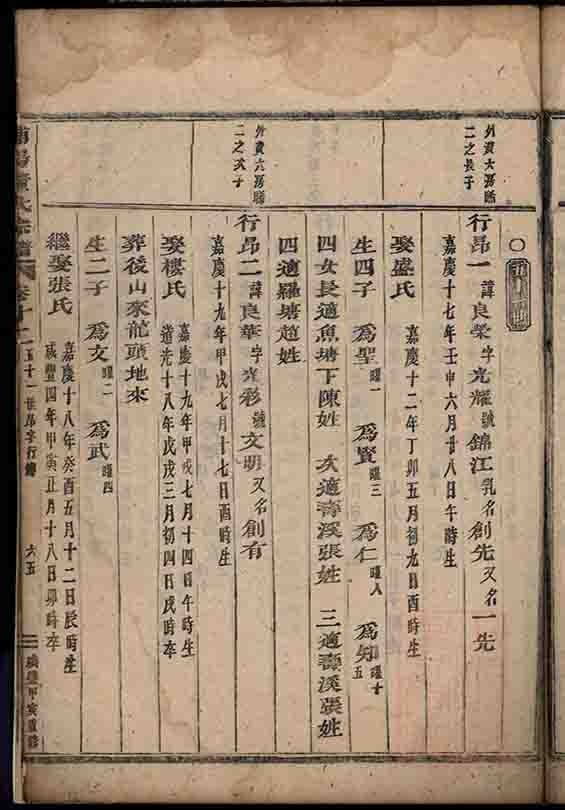 外黃大房賜
二之長子
行昂一 諱良棨字光耀號錦江乳名創先又名一先
嘉慶十七年壬申六月廿八日午時生
娶盛氏 嘉慶十二年丁卯五月初九日酉時生
生四子 為聖曜一 為賢曜三 為仁曜八 為知曜十五
四女長適魚塘下陳姓 次適壽溪張姓 三適壽溪張姓
四適羅塘趙姓
外黃大房賜
二之次子
行昂二 諱良華字光彩號文明又名創有
嘉慶十九年甲戌七月十七日酉時生
娶樓氏 嘉慶十九年甲戌七月十四日午時生
道光十八年戊戌三月初四日戌時卒
葬後山來龍頭地來
生二子 為文曜二 為武曜四
繼娶張氏 嘉慶十八年癸酉五月十二日辰時生
咸豐四年甲寅正月十八日卯時卒
黃氏宗譜
卷十二 五十一世昂字行傳 六五
咸豐甲寅重修